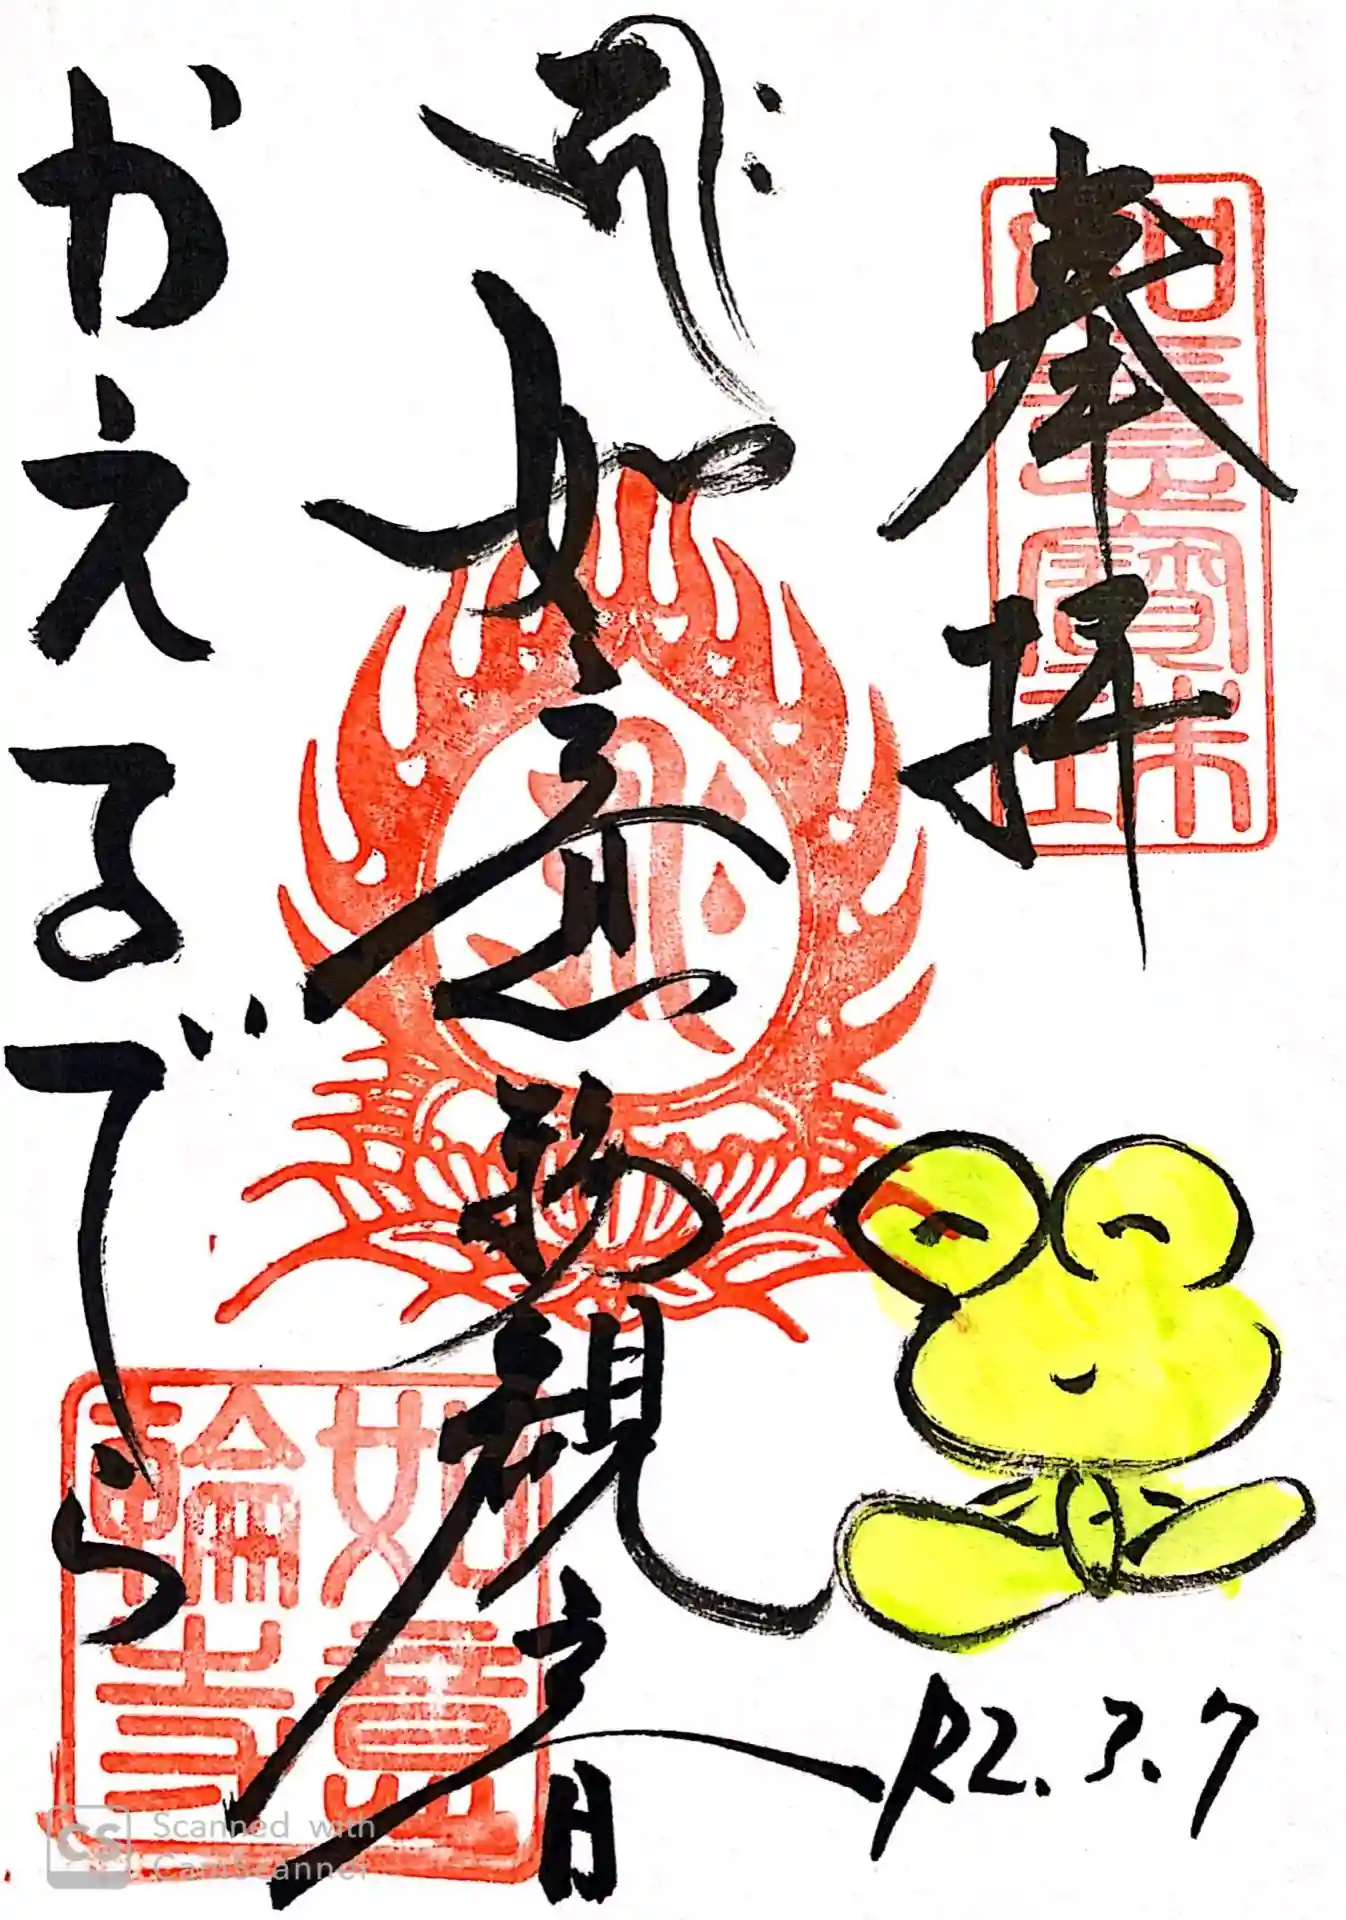 奉拝
如意宝珠
R2.3.7
如意輪観音
かえるでら
如意輪寺
CS
Scanned with
CamScanner